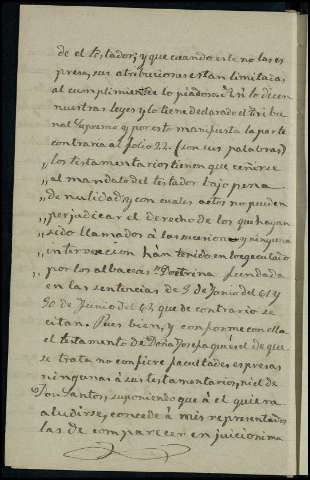 de el testador; y que cuando este no las es
presa, sus atribuciones estan limitadas
al cumplimiento de lo piadoso. Así lo dicen
nuestras leyes y lo tiene declarado el tribu
nal Supremo y por esto manifiesta la parte
contraria al folio 22. (son sus palabras)
"los testamentarios tienen que ceñirse
"al mandato del testador bajo pena
"de nulidad, y con cuales actos no pueden
"perjudicar el derecho de los que hayan
"sido llamados á la sucesion y ninguna
"intervencion hán tenido en lo ejecutado
"por los albaceas" Doctrina fundada
en las sentencias de 5 de Junio del 61 y
30 de Junio del 63 que de contrario se
citan. Pues bien, y conforme con ella
el testamento de Doña Josefa que es el de que
se trata no confiere facultades espresas
ningunas á sus testamentarios, ni el de
Don Santos, suponiendo que á el quiera
aludirse, concede á mis representados
las de comparecer en juicio sin